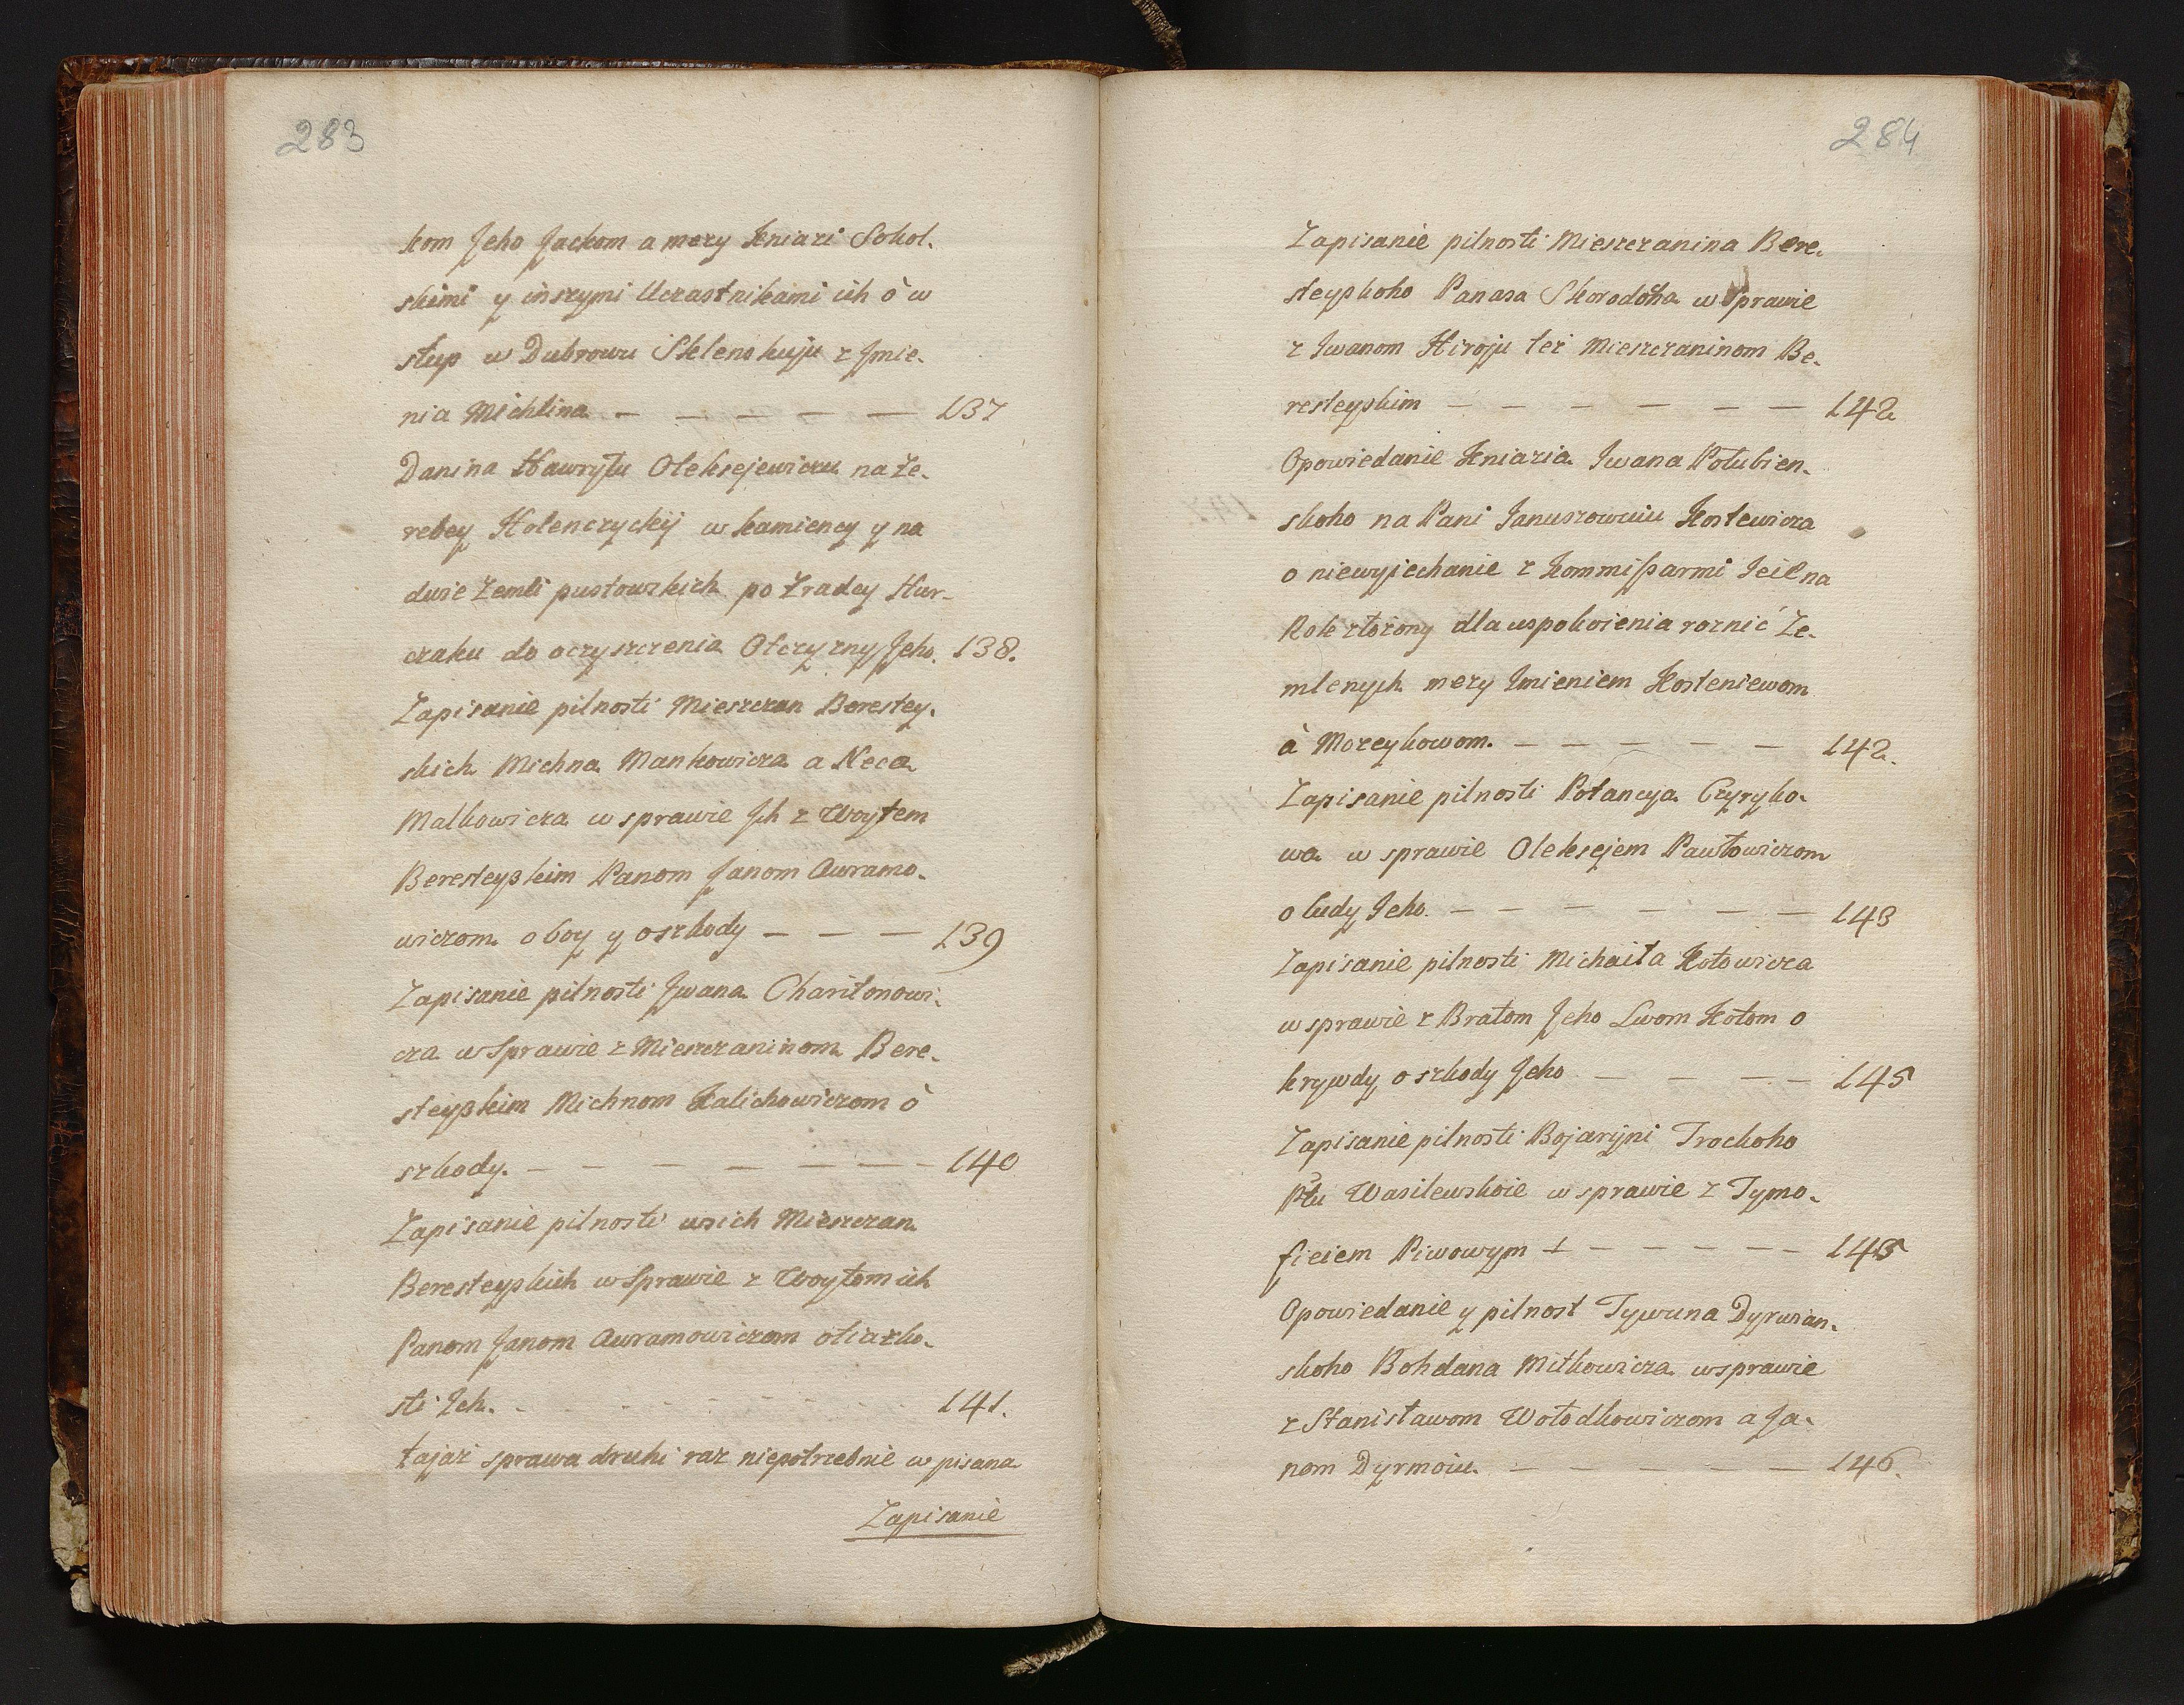 283
kom Jeho Jackom a mezy Kniazi Sokol-
skimi y inszymi Uczastnikami ich ò w
stup w Dubrowu Sklenskuju z Jmie-
nia Michlina — — — — — 137
Danina Hawryłu Oleksejewiczu na Że-
rebey Holenczyckij w Kamiency y na
dwie Zemli pustowzkich po Zradcy Hur-
czaku do oczyszczenia Otczyzny Jeho. 138.
Zapisanie pilnosti Mieszczan Berestey-
skich Michna Mankowicza a Neca
Malkowicza w sprawie Jch z Woytem
Beresteyskim Panom Janom Awramo-
wiczom o boy y o szkody — — — 139
Zapisanie pilnosti Jwana Charitonowi-
cza w Sprawie z Mieszczaninom Bere-
steyskim Michnom Kalichowiczom ò
szkody. — — — — — — — 140
Zapisanie pilnosti wsich Mieszczan
Beresteyskich w Sprawie z Woytom ich
Panom Janom Awramowiczom o tiazko-
sti Jch. - - - - - - 141.
tajaż sprawa druhi raz niepotrzebnie wpisana
Zapisanie
284
Zapisanie pilnosti Mieszczanina Bere-
steyskoho Panasa Skorodoha w Sprawie
z Jwanom Hiroju też Mieszczaninom Be-
resteyskim — — — — — — 142
Opowiedanie Kniazia Jwana Połubien-
skoho na Pani Januszowuiu Kostewicza
o niewyjechanie z Kommissarmi Jeiè na
Rok złożony dla uspokoienia roznić Ze-
mlenych mezy Jmieniem Kosteniewom
à Mozeykowom. — — — — — 142.
Zapisanie pilnosti Połancya Czyryko-
wa w sprawie Oleksejem Pawłowiczom
o ludy Jeho. — — — — — — 143
Zapisanie pilnosti Michaiła Kotowicza
w sprawie z Bratom Jeho Lwom Kotom o
krywdy, o szkody Jeho — — — — 145
Zapisanie pilnosti Bojaryni Trockoho
Płu Wasilewskoie w sprawie z Tymo-
fieiem Piwowym — — — — — 145
Opowiedanie y pilnost Tywuna Dyrwian-
skoho Bohdana Mitkowicza w sprawie
z Stanisławom Wołodkowiczom a Ja-
nom Dyrmoiu. — — — — — — 146.